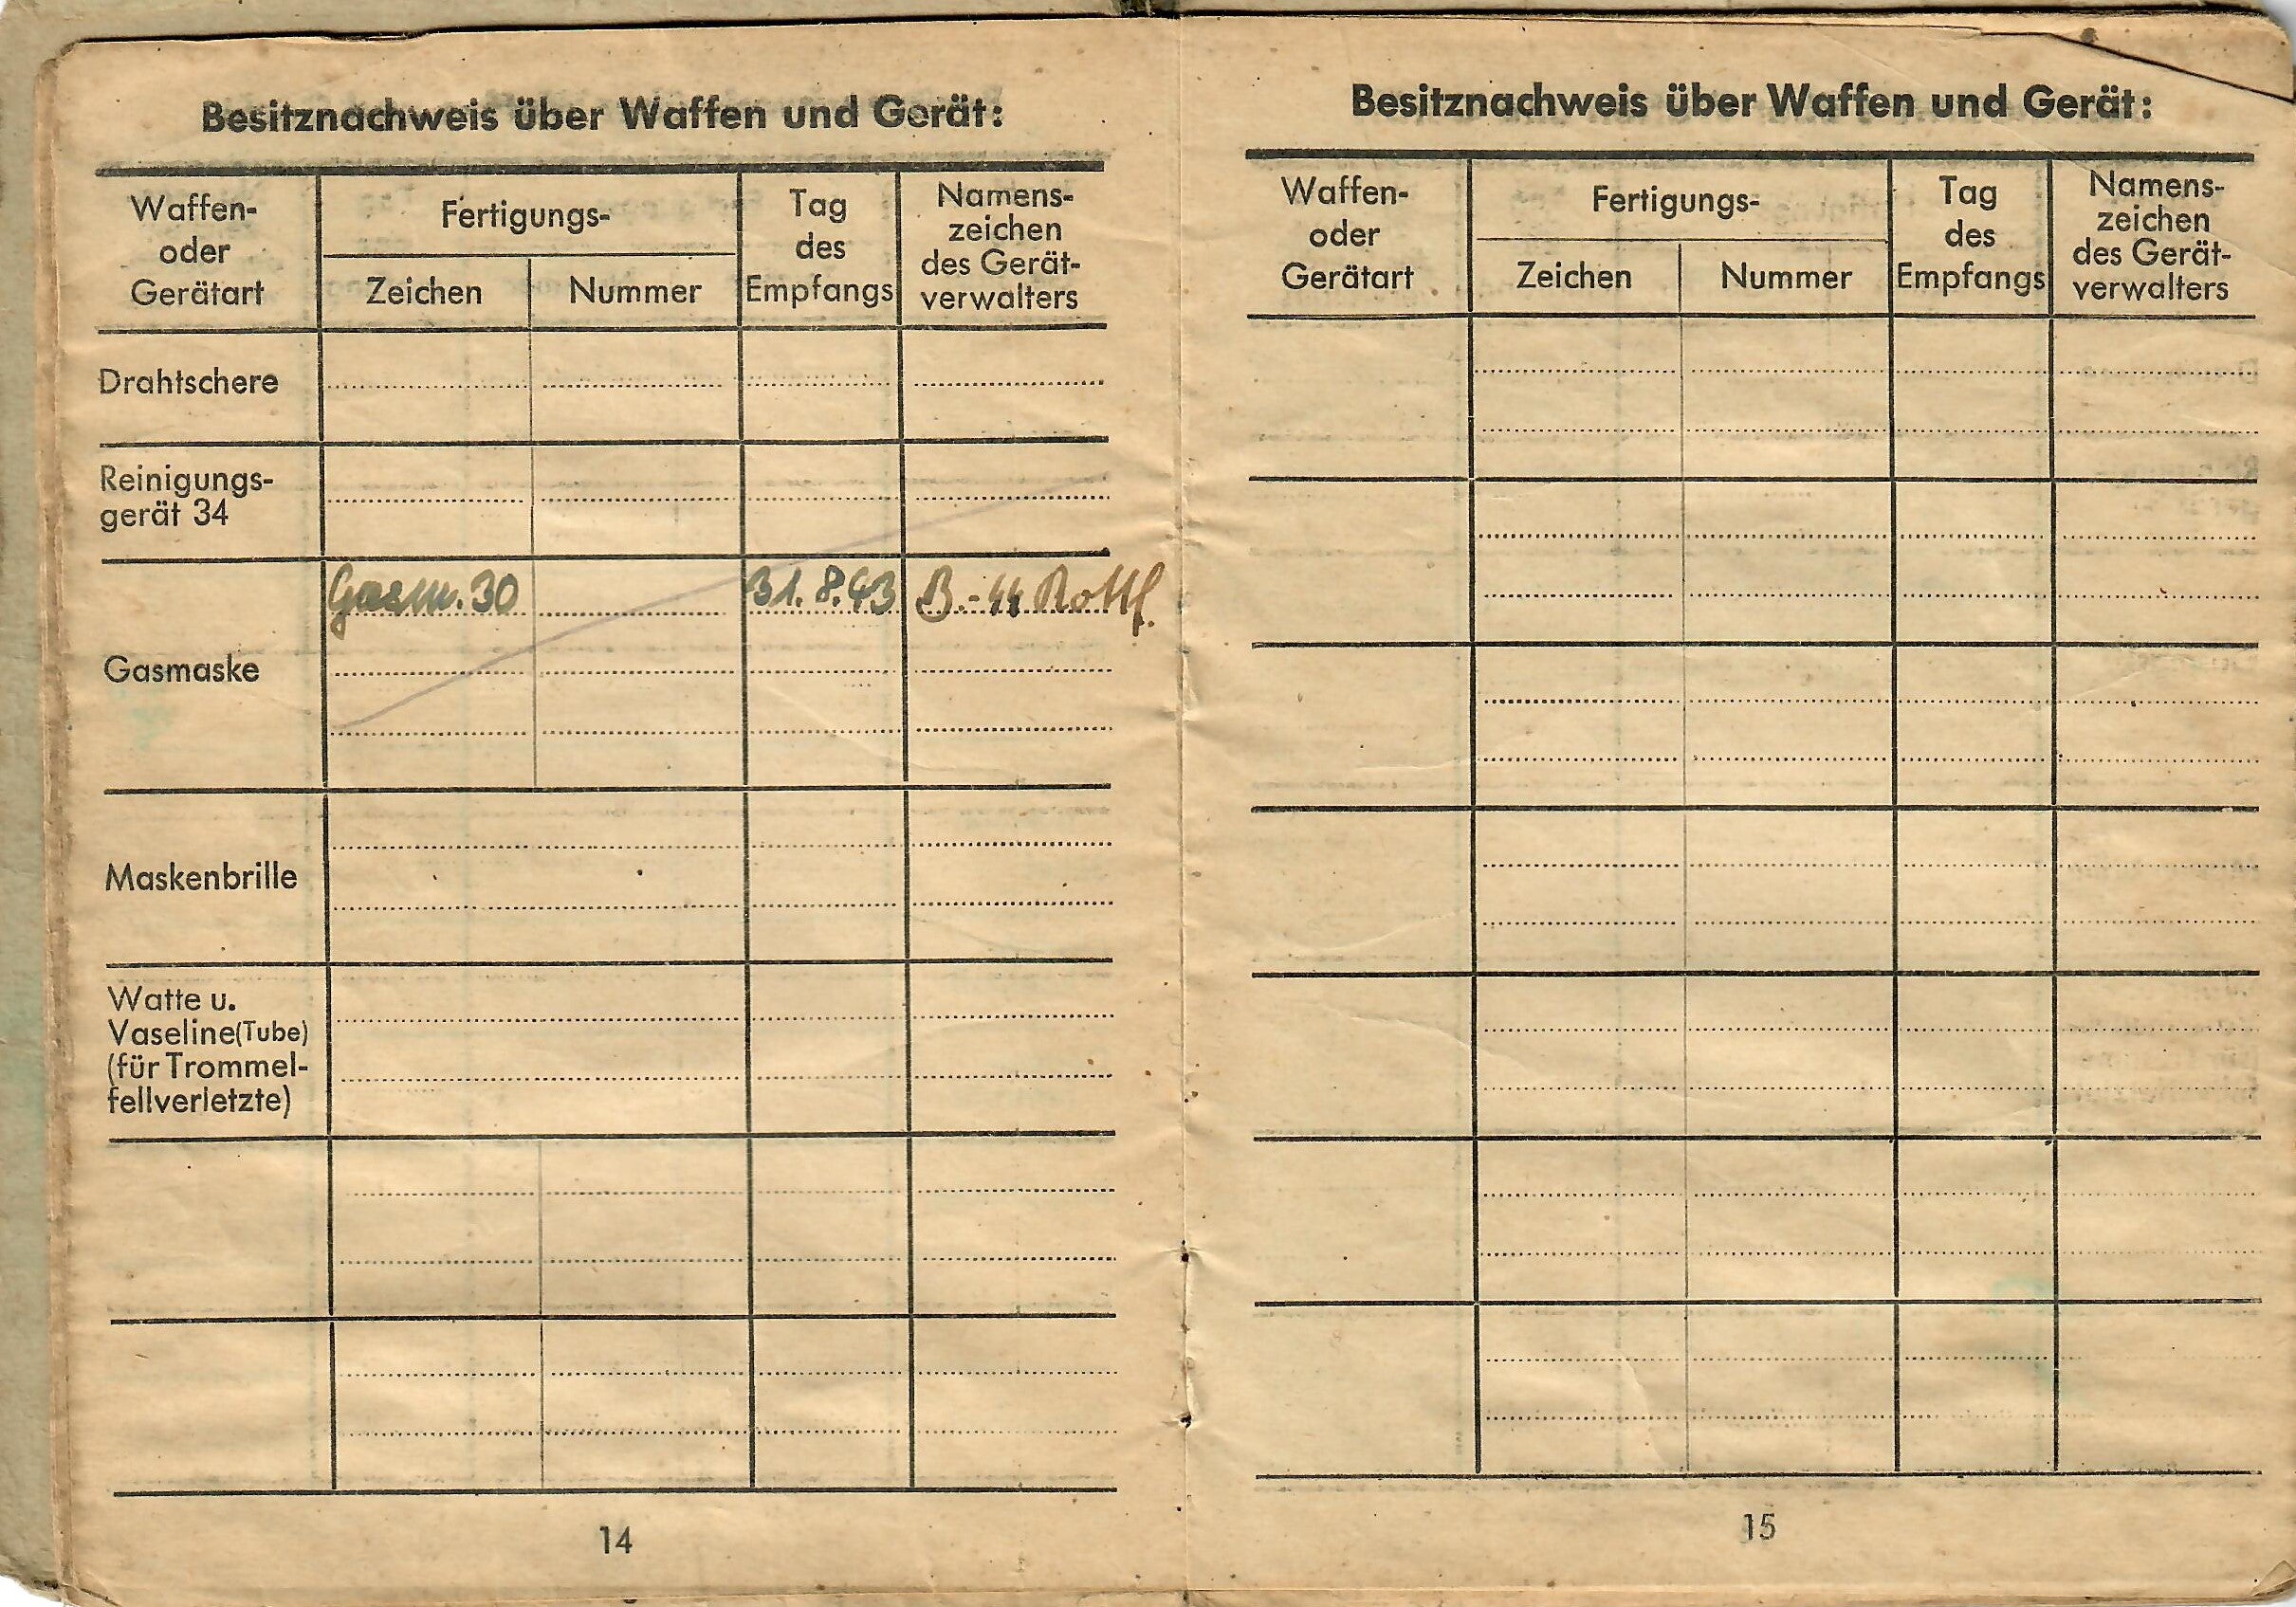 Besitznachweis über Waffen und Gerät:
Waffen-
oder
Gerätart
Fertigungs-
Zeichen
Nummer
Tag
des
Empfangs
Namens-
zeichen
des Gerät-
verwalters
Drahtschere
Reinigungs-
gerät 34
Gasmaske
Gasm. 30 31.8.43 B.-ᛋᛋ Rottf.
Maskenbrille
Watte u.
Vaseline(Tube)
(für Trommel-
fellverletzte)
14
Besitznachweis über Waffen und Gerät:
Waffen-
oder
Gerätart
Fertigungs-
Zeichen
Nummer
Tag
des
Empfangs
Namens-
zeichen
des Gerät-
verwalters
15